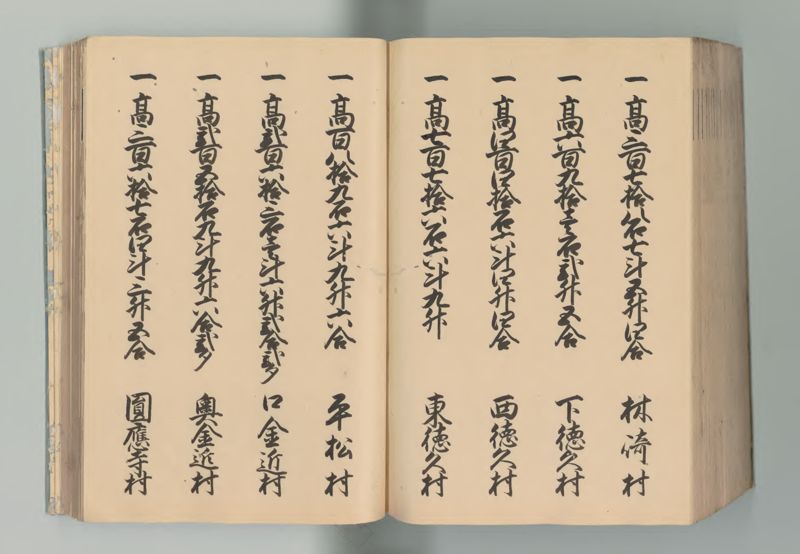 一 高三百七拾八石七斗五升四合 林崎村
一 高六百九拾壱石弐升五合 下徳久村
一 高四百四拾石六斗四升四合 西徳久村
一 高七百七拾六石六斗九升 東徳久村
一 高百八拾九石六斗九升六合 平松村
一 高弐百六拾三石壱斗六升弐合弐夕 口金近村
一 高弐百五拾石九斗九升六合弐夕 奥金近村
一 高三百六拾七石四斗三升五合 圓應寺村